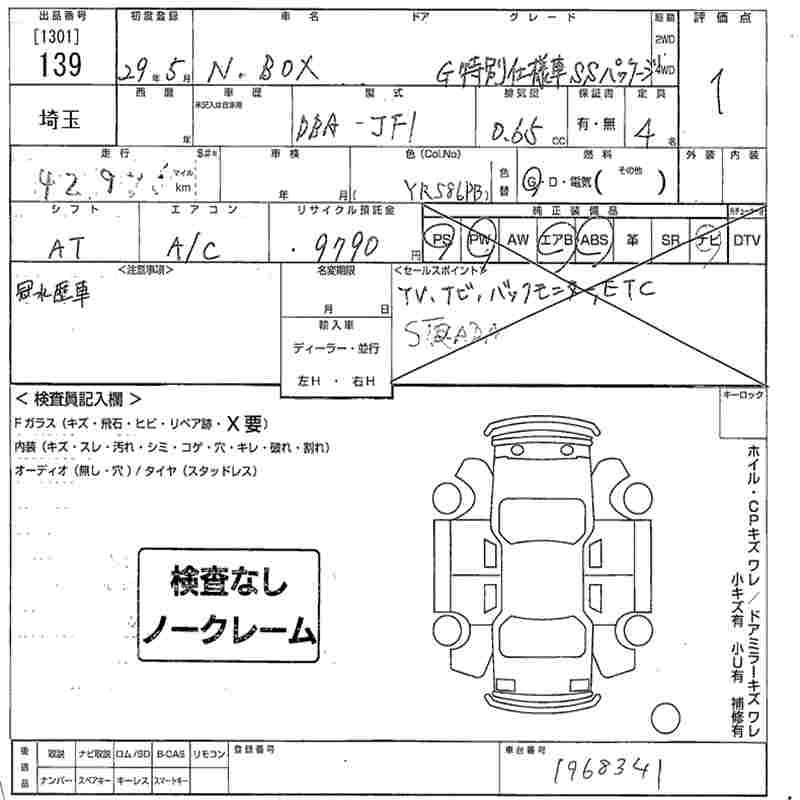 出品番号 初度登録 車名 ドア グレード 駆動 評価点
[1301]
139 29年5月 N.BOX G特別仕様車SSパッケージ 2WD 4WD 1
埼玉 西暦 年 車歴 未記入は自家用 型式 排気量 保証書 定員
DBA-JF1 0.65cc 有・無 4名
走行 車検 色(Col.No) 燃料 外装 内装
マイル km 年 月 YR586PB 色替 G・D・電気( その他 )
シフト エアコン リサイクル預託金 純正装備品
AT A/C 9790円 PS PW AW エアB ABS 革 SR ナビ DTV
<注意事項> 名変期限 <セールスポイント>
冠水歴車 月 日 TV、ナビ、バックモニター、ETC
輸入車
ディーラー・並行
左H ・ 右H
< 検査員記入欄 > キーロック
Fガラス(キズ・飛石・ヒビ・リペア跡・X要)
内装(キズ・スレ・汚れ・シミ・コゲ・穴・キレ・破れ・割れ)
オーディオ(無し・穴)/タイヤ(スタッドレス)
検査なし
ノークレーム
ホイル・CPキズ ワレ / ドアミラーキズ ワレ
小キズ有 小U有 補修有
後送品 取説 ナビ取説 ロム/SD B-CAS リモコン 登録番号 車台番号
ナンバー スペアキー キーレス スマートキー 1968341